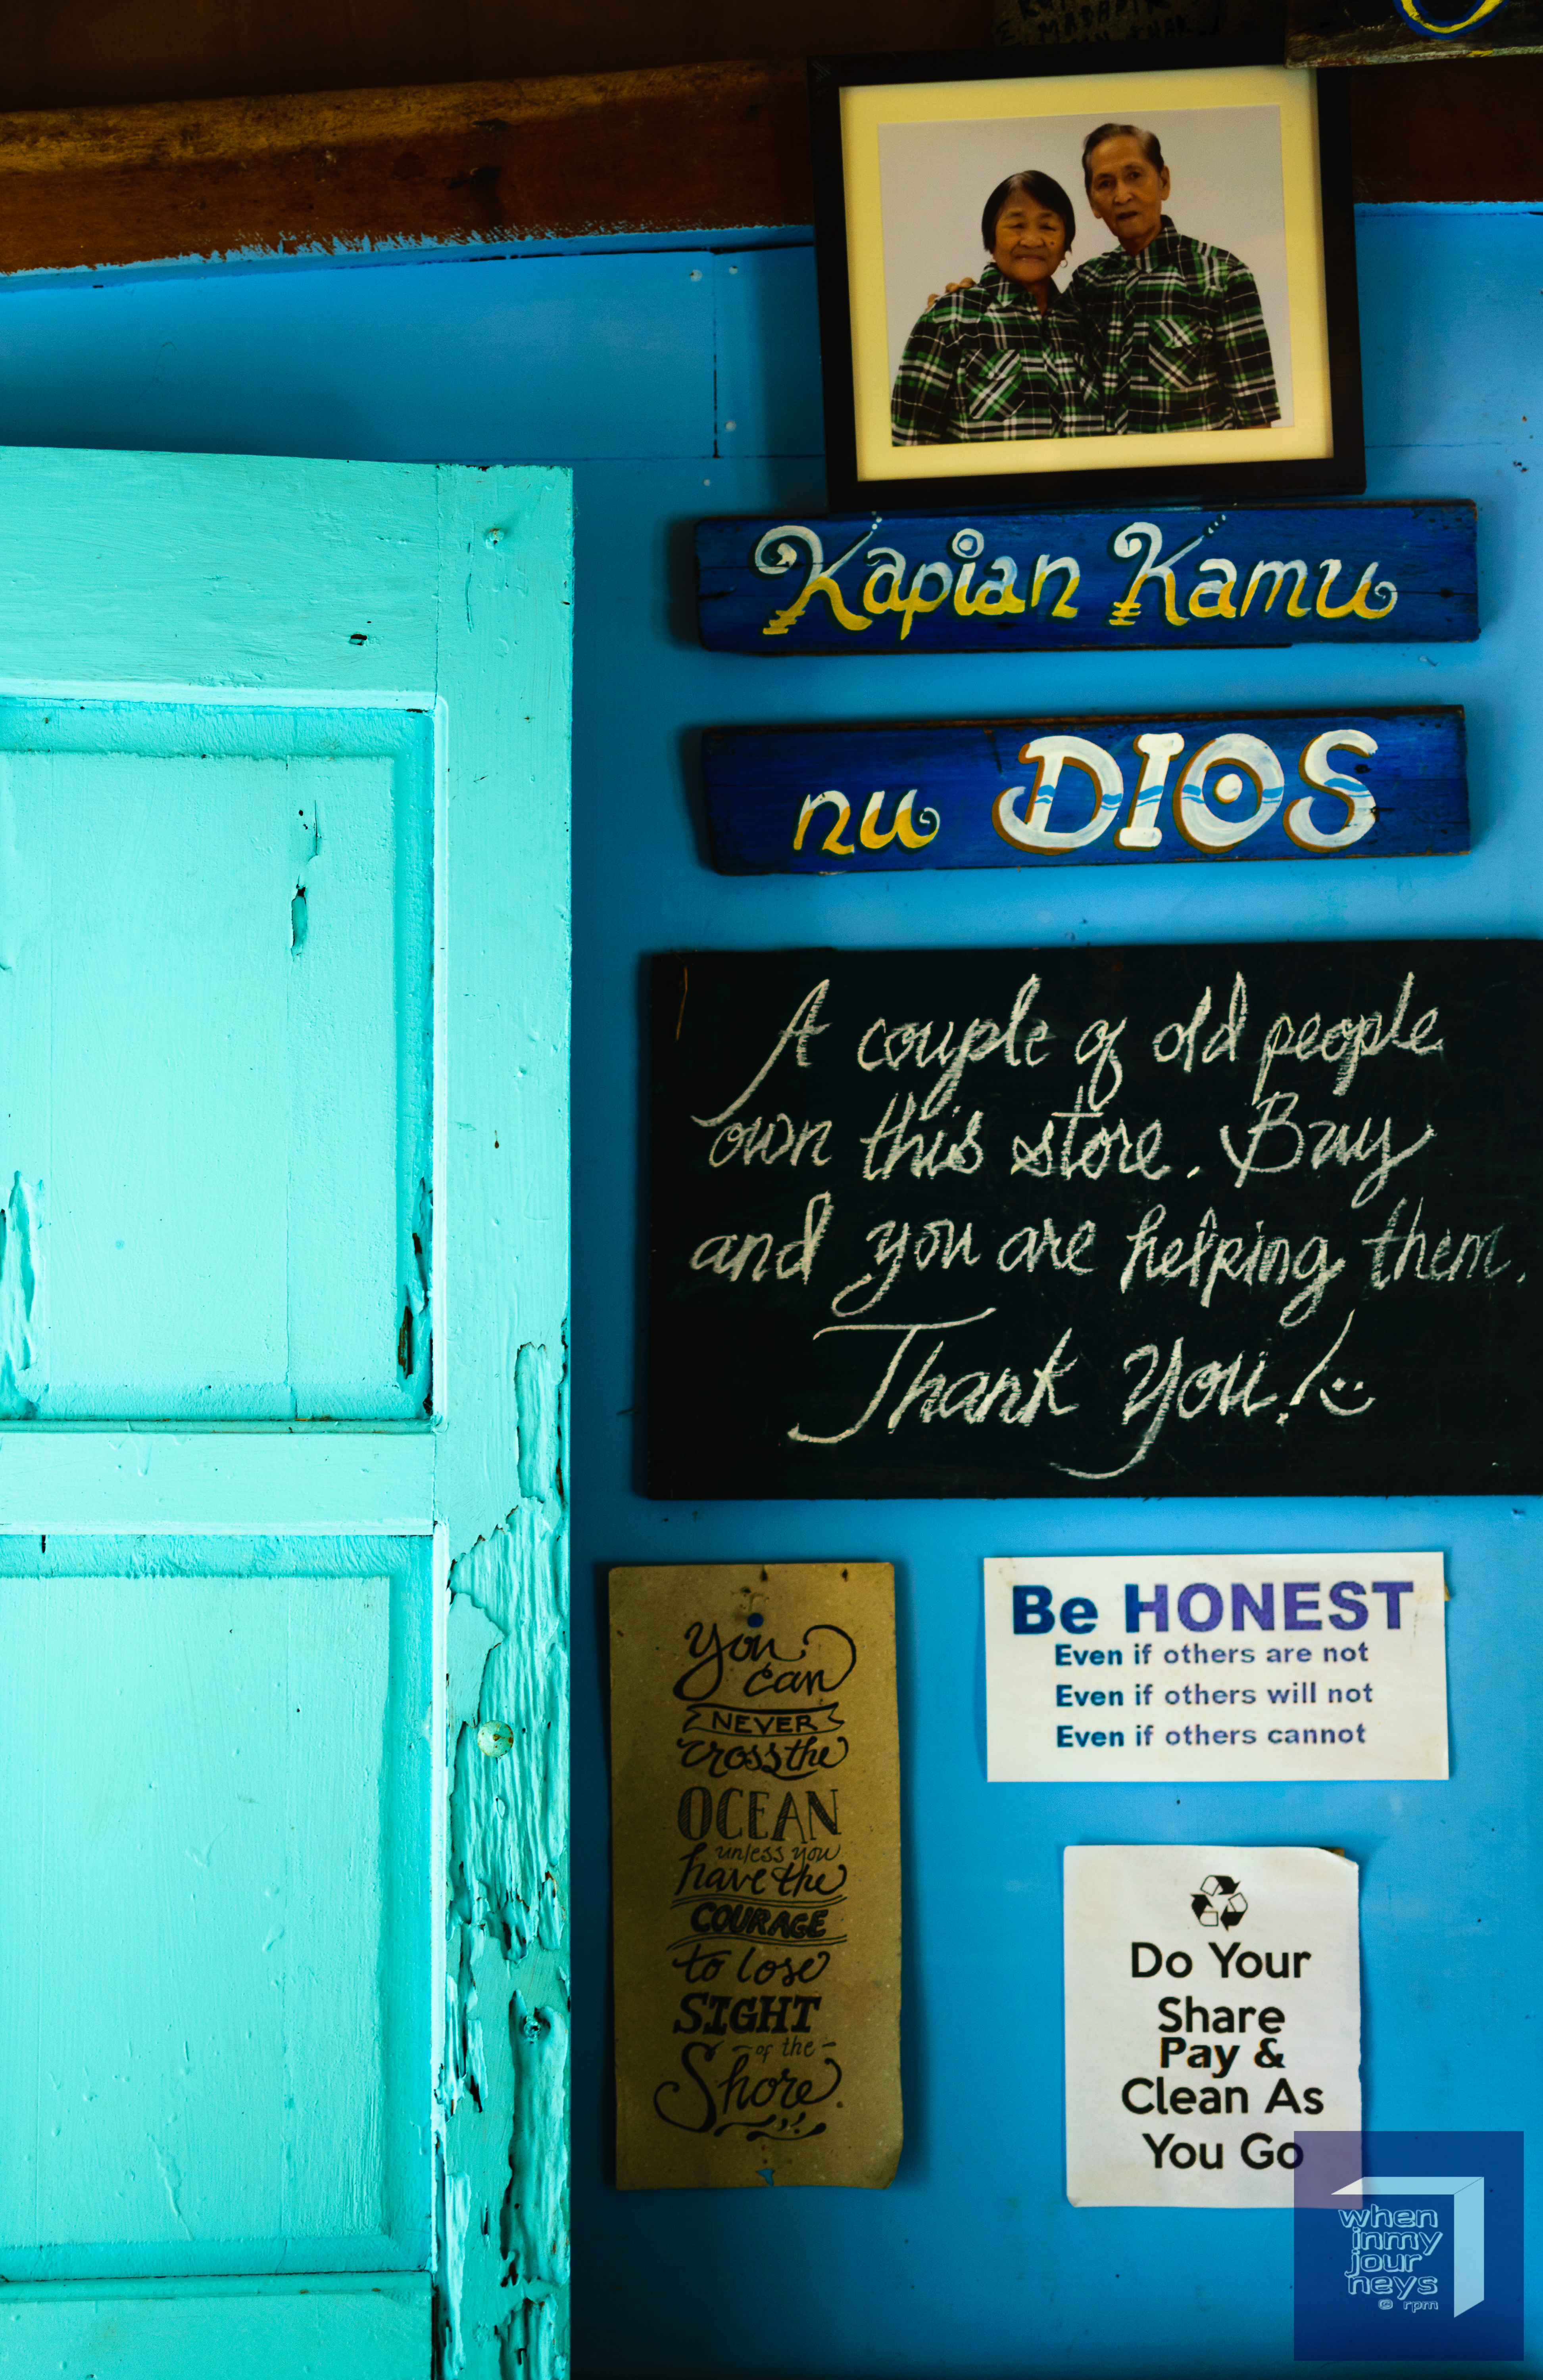 Kapian Kamu
nu DIOS
A couple of old people
own this store. Buy
and you are helping them.
Thank You!
You
can
NEVER
cross the
OCEAN
unless you
have the
COURAGE
to lose
SIGHT
of the
Shore.
Be HONEST
Even if others are not
Even if others will not
Even if others cannot
Do Your
Share
Pay &
Clean As
You Go
when
inmy
jour
neys
@ rpm